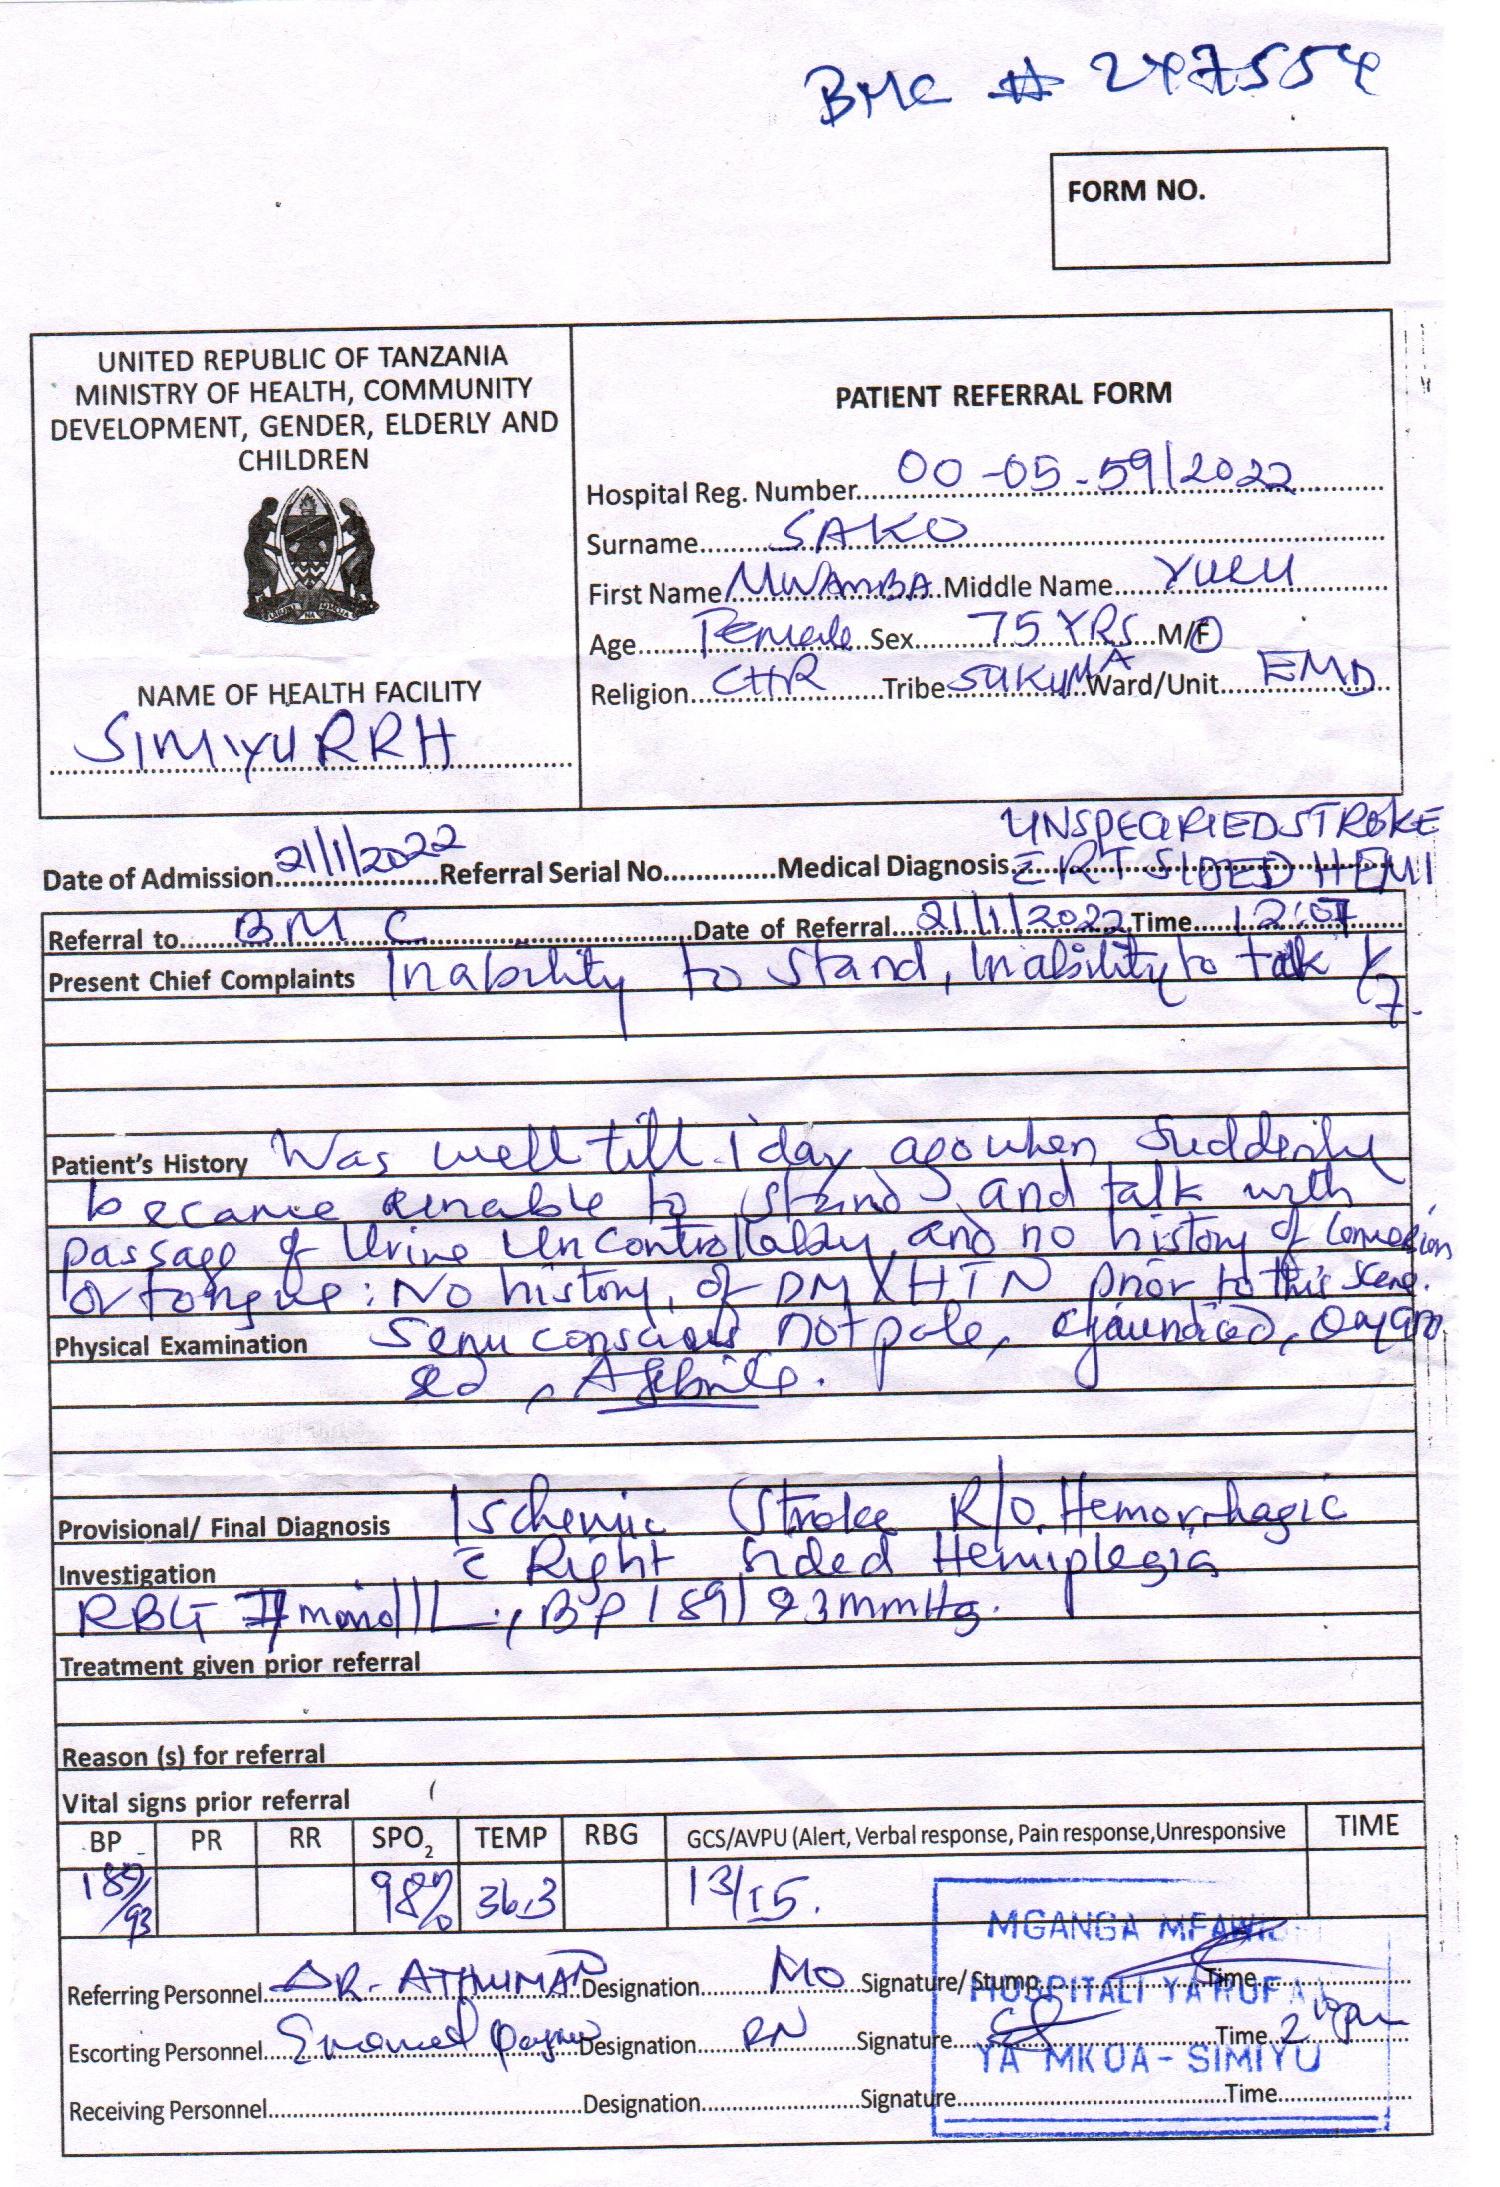 BMC # 247554
FORM NO.
UNITED REPUBLIC OF TANZANIA
MINISTRY OF HEALTH, COMMUNITY
DEVELOPMENT, GENDER, ELDERLY AND
CHILDREN
NAME OF HEALTH FACILITY
SIMIYU RRH
PATIENT REFERRAL FORM
Hospital Reg. Number 00-05-59/2022
Surname SAKO
First Name MWAMBA Middle Name YULU
Age Female Sex 75 YRS M/F
Religion CHR Tribe SUKUMA Ward/Unit EMD
UNSPECIFIED STROKE
Date of Admission 21/1/2022 Referral Serial No. Medical Diagnosis c̄ RT SIDED HEMI
Referral to BMC Date of Referral 21/1/2022 Time 12:07
Present Chief Complaints Inability to stand, Inability to talk
Patient's History Was well till 1 day ago when suddenly
became unable to stand and talk with
passage of Urine Uncontrollably and no history of
or tongue: No history of DM HTN prior to this
Physical Examination Semi conscious not pale,
Afebrile.
Provisional/ Final Diagnosis Ischemic Stroke R/O. Hemorrhagic
Investigation c̄ Right sided Hemiplegia
RBG mmol/L, BP 189/93mmHg.
Treatment given prior referral
Reason (s) for referral
Vital signs prior referral
BP PR RR SPO2 TEMP RBG GCS/AVPU (Alert, Verbal response, Pain response,Unresponsive TIME
189/93 98% 36.3 13/15.
MGANGA
Referring Personnel DR. ATHUMAN Designation MO Signature/ Stump Time
HOSPITALI YA RUFAA
Escorting Personnel Designation RN Signature Time 2
YA MKOA - SIMIYU
Receiving Personnel Designation Signature Time